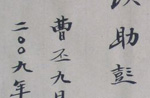 以助彭
曹丕九日
二〇〇九年